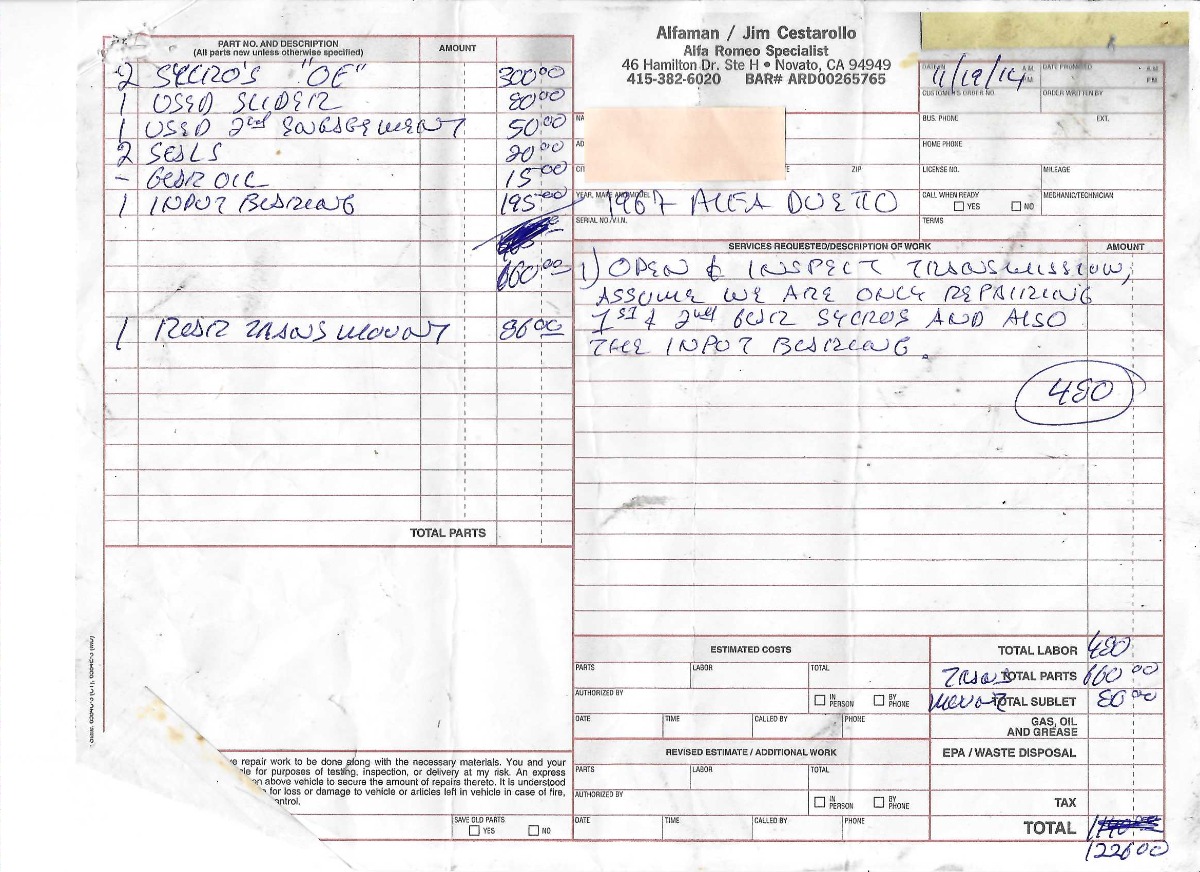 Alfaman / Jim Cestarollo
Alfa Romeo Specialist
46 Hamilton Dr. Ste H • Novato, CA 94949
415-382-6020 BAR# ARD00265765
PART NO. AND DESCRIPTION
(All parts new unless otherwise specified)
AMOUNT
2 SYCRO'S "OE" 300.00
1 USED SLIDER 80.00
1 USED 2nd ENGAGEMENT 50.00
2 SEALS 20.00
– GEAR OIL 15.00
1 INPUT BEARING 195.00
660.00
1 REAR TRANS MOUNT 86.00
TOTAL PARTS
DATE IN 11/19/14 A.M. P.M.
DATE PROMISED A.M. P.M.
CUSTOMER'S ORDER NO.
ORDER WRITTEN BY
NA
BUS. PHONE EXT.
AD
HOME PHONE
CIT E ZIP
LICENSE NO. MILEAGE
YEAR, MAKE AND MODEL 1967 ALFA DUETTO
CALL WHEN READY YES NO
MECHANIC/TECHNICIAN
SERIAL NO./V.I.N.
TERMS
SERVICES REQUESTED/DESCRIPTION OF WORK AMOUNT
1) OPEN & INSPECT TRANSMISSION,
ASSUME WE ARE ONLY REPAIRING
1ST & 2nd GEAR SYCROS AND ALSO
THE INPUT BEARING.
480
ESTIMATED COSTS
PARTS LABOR TOTAL
AUTHORIZED BY IN PERSON BY PHONE
DATE TIME CALLED BY PHONE
REVISED ESTIMATE / ADDITIONAL WORK
PARTS LABOR TOTAL
AUTHORIZED BY IN PERSON BY PHONE
DATE TIME CALLED BY PHONE
TOTAL LABOR 480
TRANS TOTAL PARTS 660.00
MOUNT TOTAL SUBLET 80.00
GAS, OIL AND GREASE
EPA / WASTE DISPOSAL
TAX
TOTAL
1226.00
ve repair work to be done along with the necessary materials. You and your
cle for purposes of testing, inspection, or delivery at my risk. An express
on above vehicle to secure the amount of repairs thereto. It is understood
for loss or damage to vehicle or articles left in vehicle in case of fire,
ontrol.
SAVE OLD PARTS
YES NO